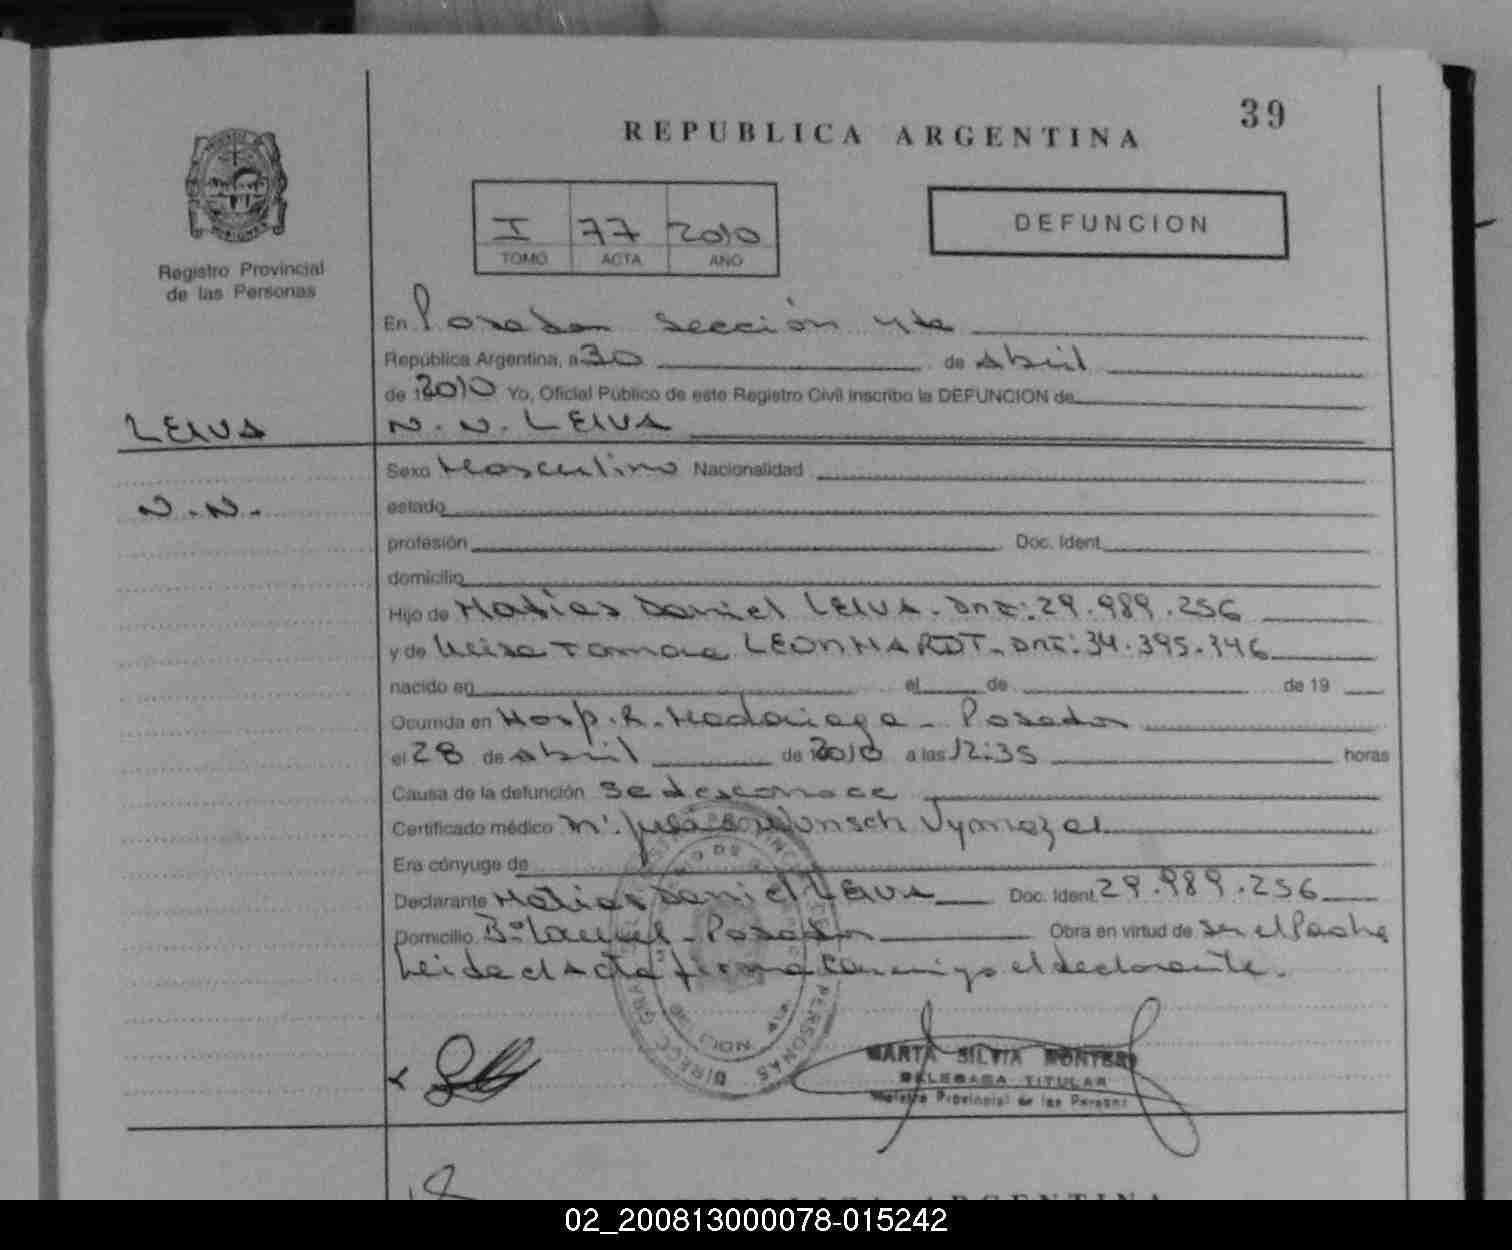 39
REPUBLICA ARGENTINA
I 77 2010
TOMO ACTA AÑO
DEFUNCION
Registro Provincial
de las Personas
En Posadas Sección 4ta
República Argentina, a 30 de Abril
de 2010 Yo, Oficial Público de este Registro Civil inscribo la DEFUNCION de
LEIVA
N. N. LEIVA
Sexo Masculino Nacionalidad
N. N.
estado
profesión Doc. Ident.
domicilio
Hijo de Matías Daniel LEIVA. DNI: 29.989.256
y de Tamara LEONHARDT. DNI: 34.395.346
nacido en el de de 19
Ocurrida en Hosp. R. Madariaga - Posadas
el 28 de Abril de 2010 a las 12:35 horas
Causa de la defunción se desconoce
Certificado médico
Era cónyuge de
Declarante Matías Daniel LEIVA Doc. Ident. 29.989.256
Domicilio Bº Laurel - Posadas Obra en virtud de ser el Padre
Leida el Acta firma Conmigo el declarante.
PERSONAS
MARTA SILVIA MONTERO
DELEGADA TITULAR
Registro Provincial de las Personas
REPUBLICA ARGENTINA
02_200813000078-015242